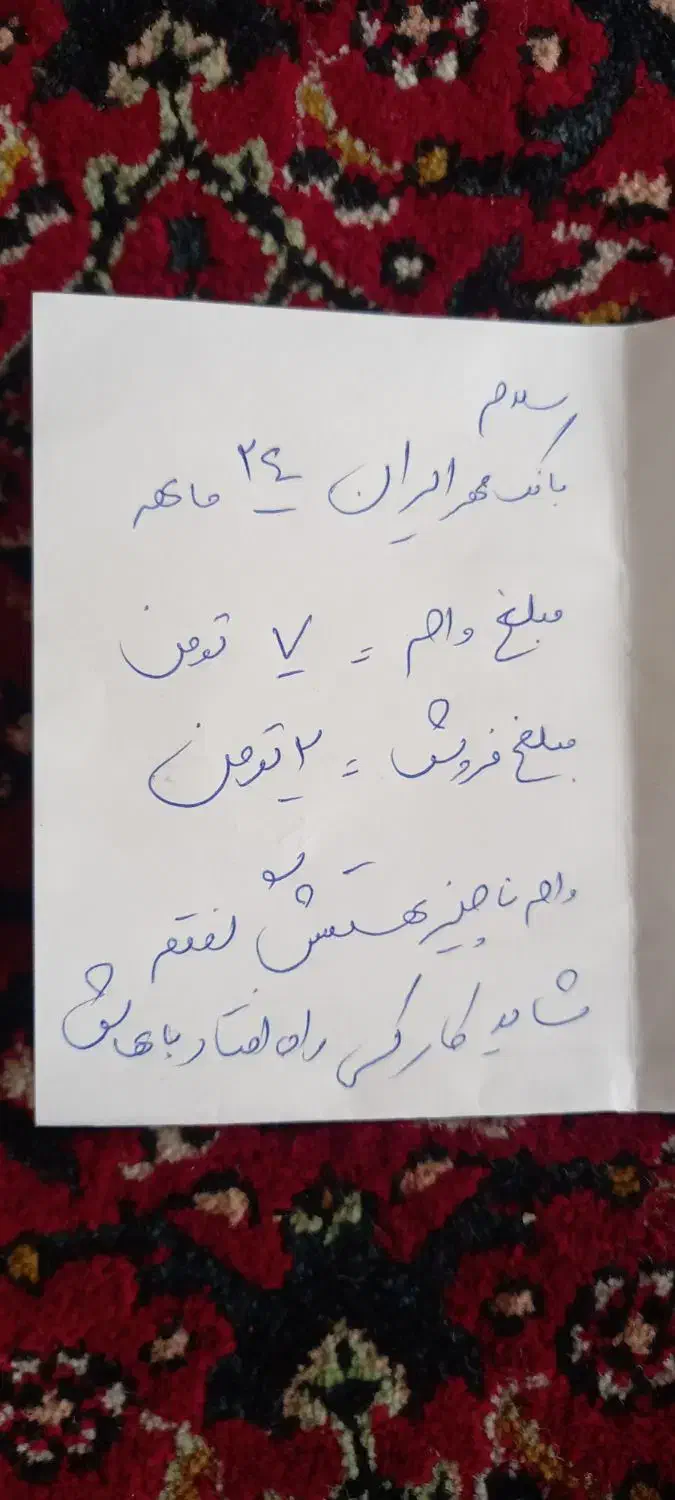 سلام
بانک مهر ایران ۲۴ ماهه
مبلغ وام = ۷ تومن
مبلغ فروش = ۲ تومن
وام ناچیز هستش گفتم
شاید کار کسی راه افتاد باهاش